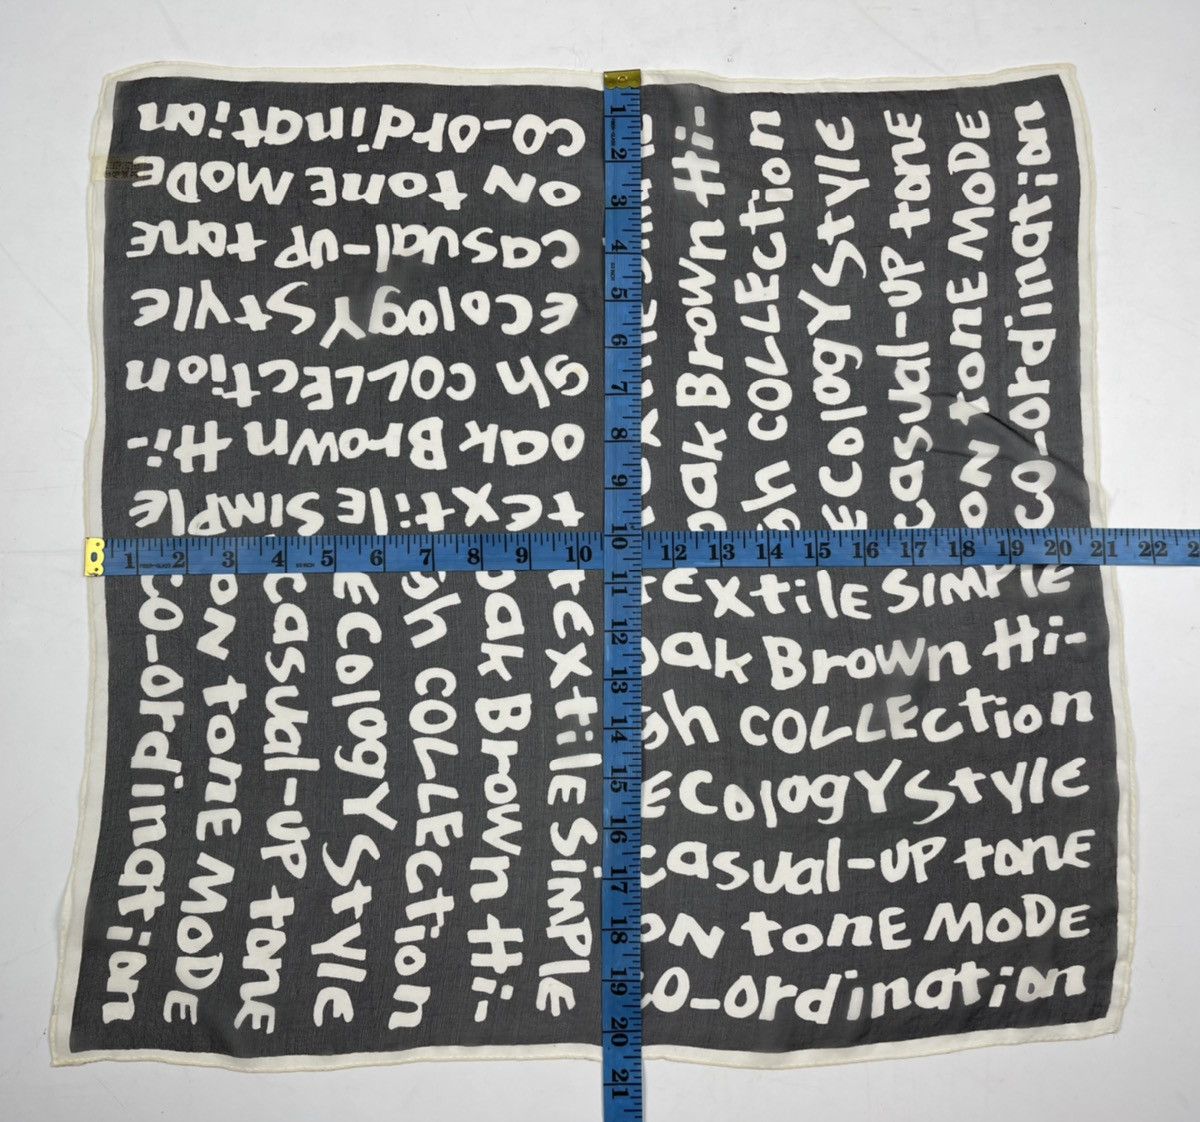 co-ordination
ON tonE MODE
casual-up tonE
ECology StYlE
gh COLLECtion
oak Brown Hi-
tExtilE SIMPlE
oak Brown Hi-
gh COLLECtion
ECology StYlE
casual-up tonE
ON tonE MODE
co-ordination
1 2 3 4 5 6 7 8 9 10 12 13 14 15 16 17 18 19 20 21 22
1 2 3 4 5 6 7 8 9 10 11 12 13 14 15 16 17 18 19 20 21
co-ordination
ON tonE MODE
casual-up tonE
ECology StYlE
gh COLLECtion
oak Brown Hi-
tExtilE SIMPlE
tExtilE SIMPlE
oak Brown Hi-
gh COLLECtion
ECology StYlE
casual-up tonE
ON tonE MODE
co-ordination